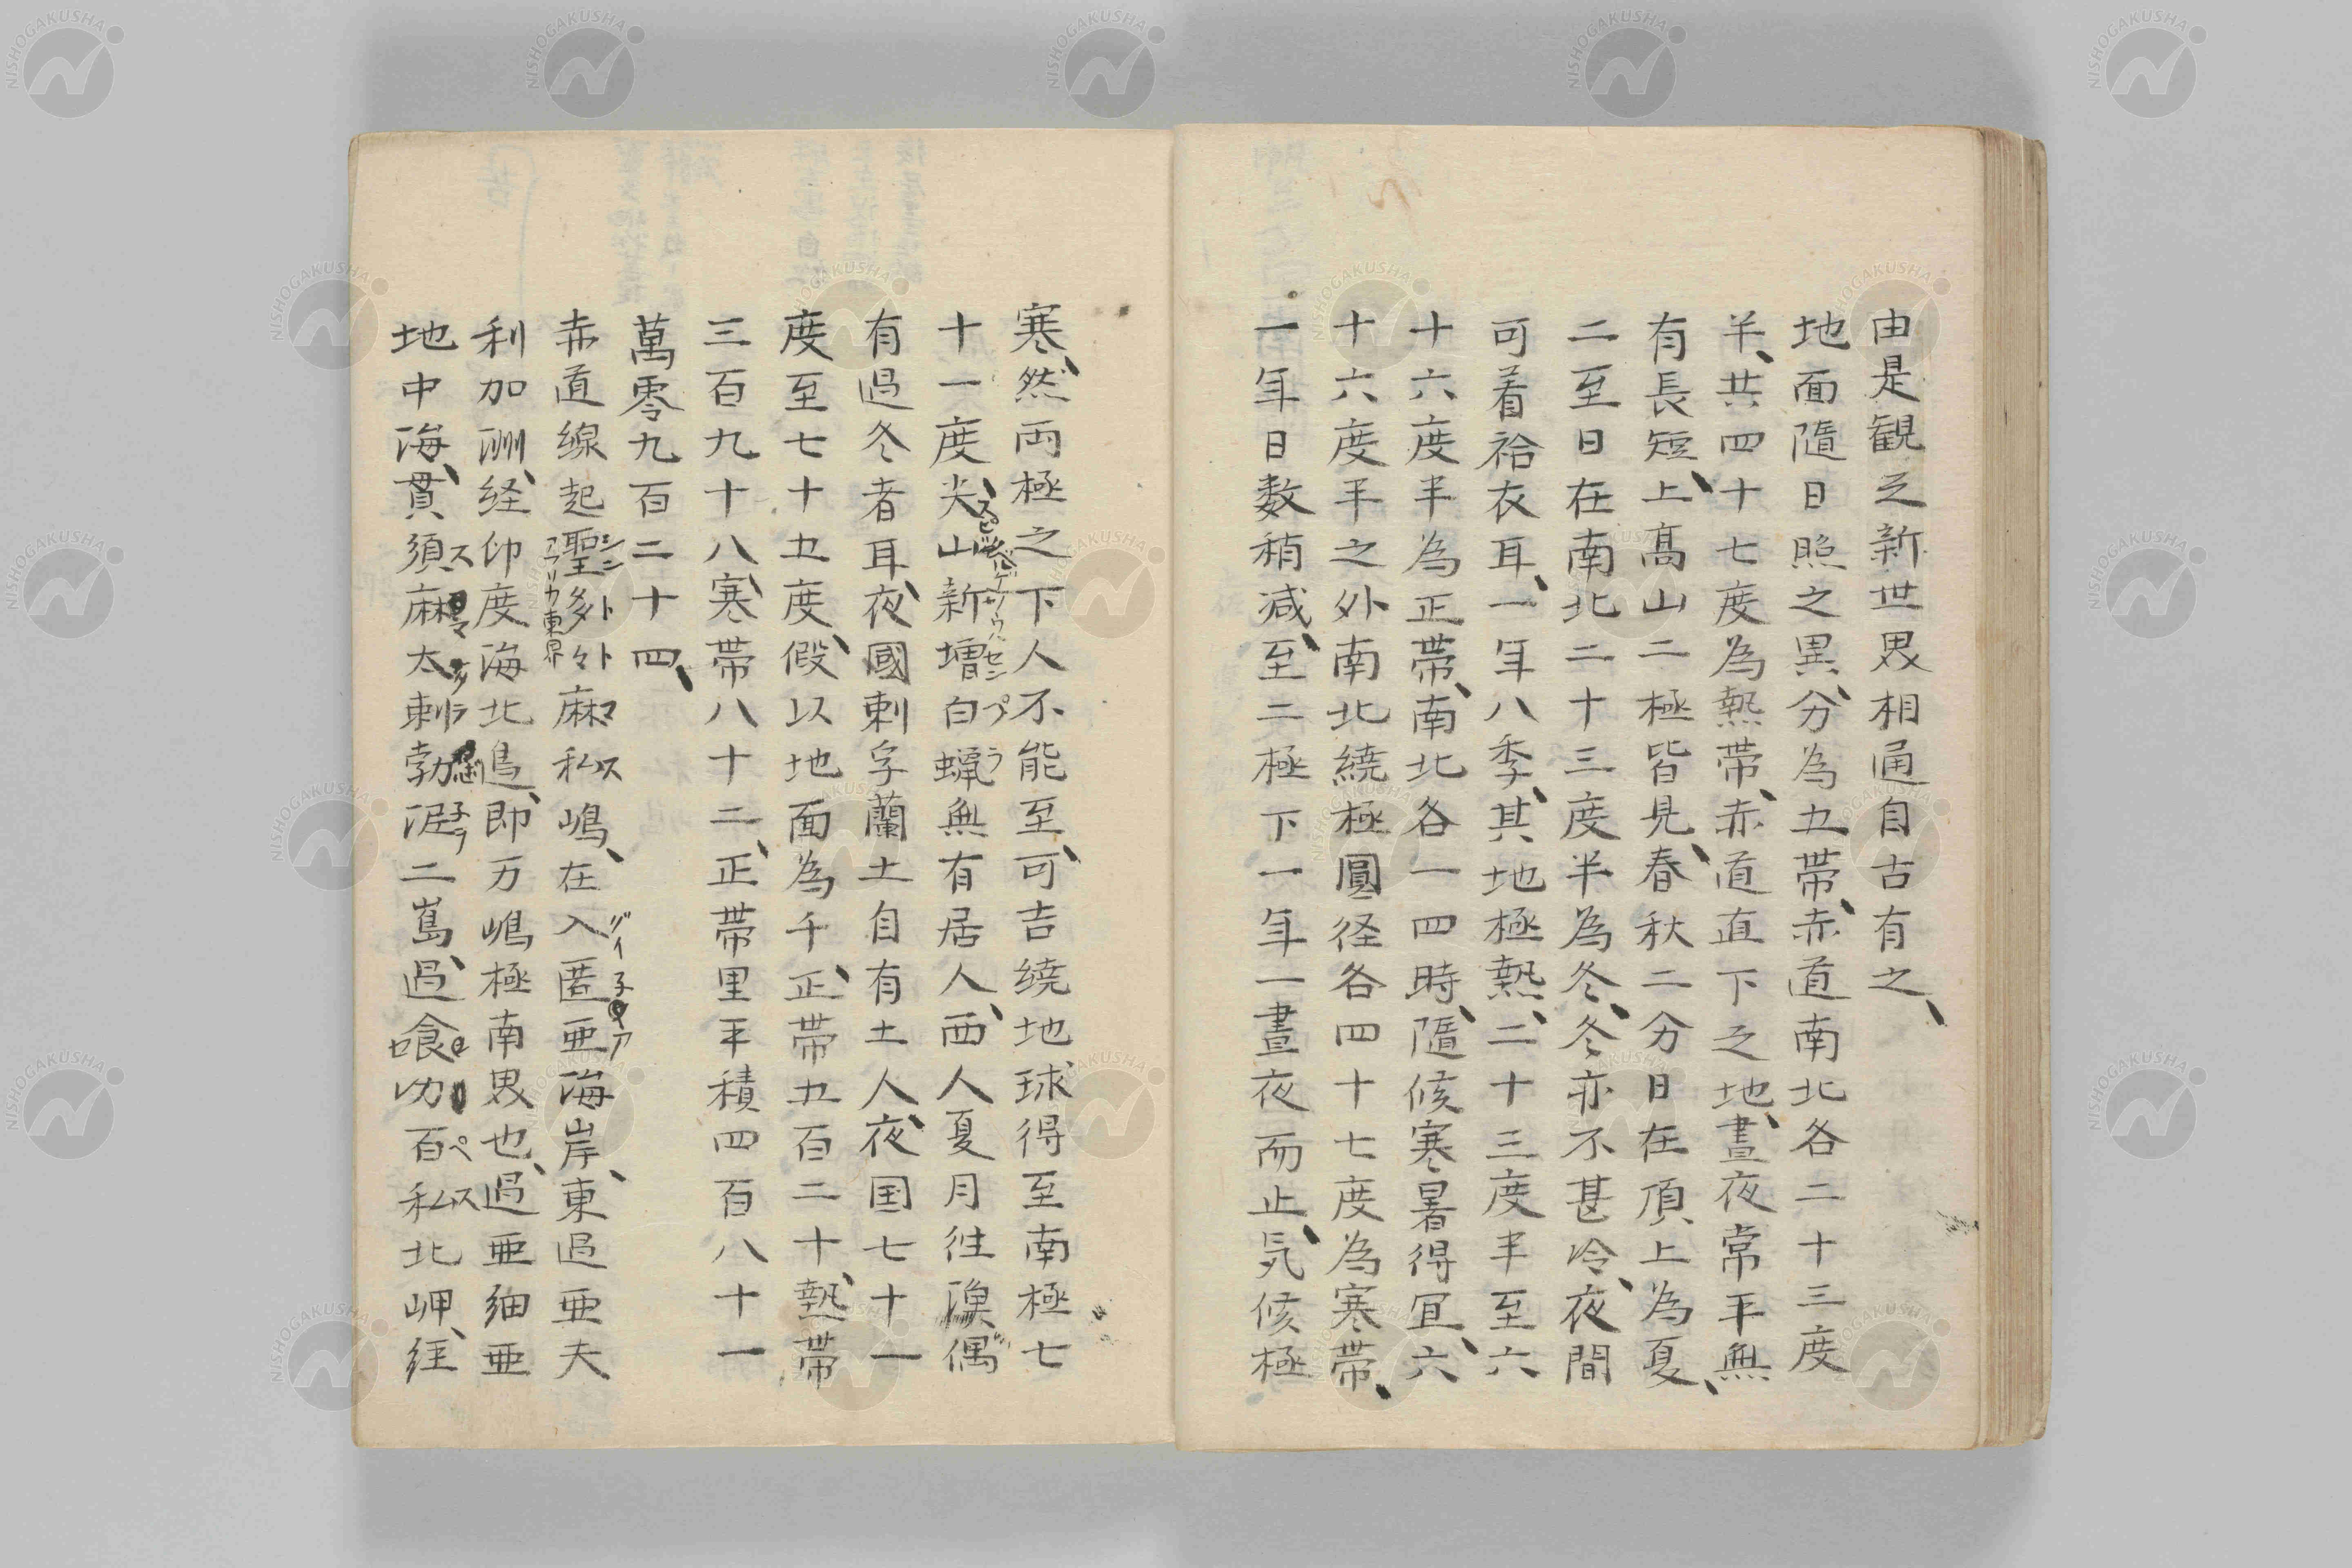 由是観之新世界相通自古有之、
地面隨日照之異、分為五帯、赤道南北各二十三度
半、共四十七度為熱帯、赤道直下之地、晝夜常平無
有長短、上髙山二極皆見、春秋二分日在頂上為夏、
二至日在南北二十三度半為冬、冬亦不甚冷、夜間
可着袷衣耳、一年八季、其地極熱、二十三度半至六
十六度半為正帯、南北各一四時、隨候寒暑得宜、六
十六度半之外南北繞極圓径各四十七度為寒帯、
一年日数稍减、至二極下一年一晝夜而止、気候極
寒、然両極之下人不能至、可吉繞地球得至南極七
十一度、尖山新増白蝋無有居人、西人夏月往漁偶
有過冬者耳、夜國刺孚蘭土自有土人、夜国七十一
度至七十五度、假以地面為千、正帯五百二十、熱帯
三百九十八、寒帯八十二、正帯里平積四百八十一
萬零九百二十四、
赤道線起聖多々麻私嶋、在入匿亜海岸、東過亜夫
利加洲、経印度海北島、即万嶋極南界也、過亜細亜
地中海、貫須麻太剌勃泥二嶌、過食力百私北岬、経